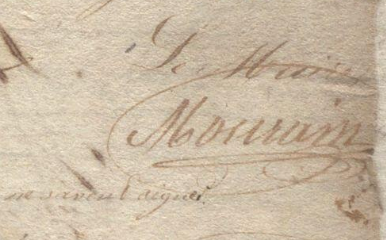 Le Maire
Mourain
ne savent signer